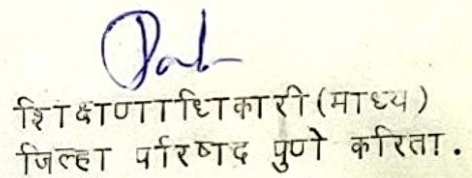 शिक्षणाधिकारी(माध्य)
जिल्हा परिषद पुणे करिता.